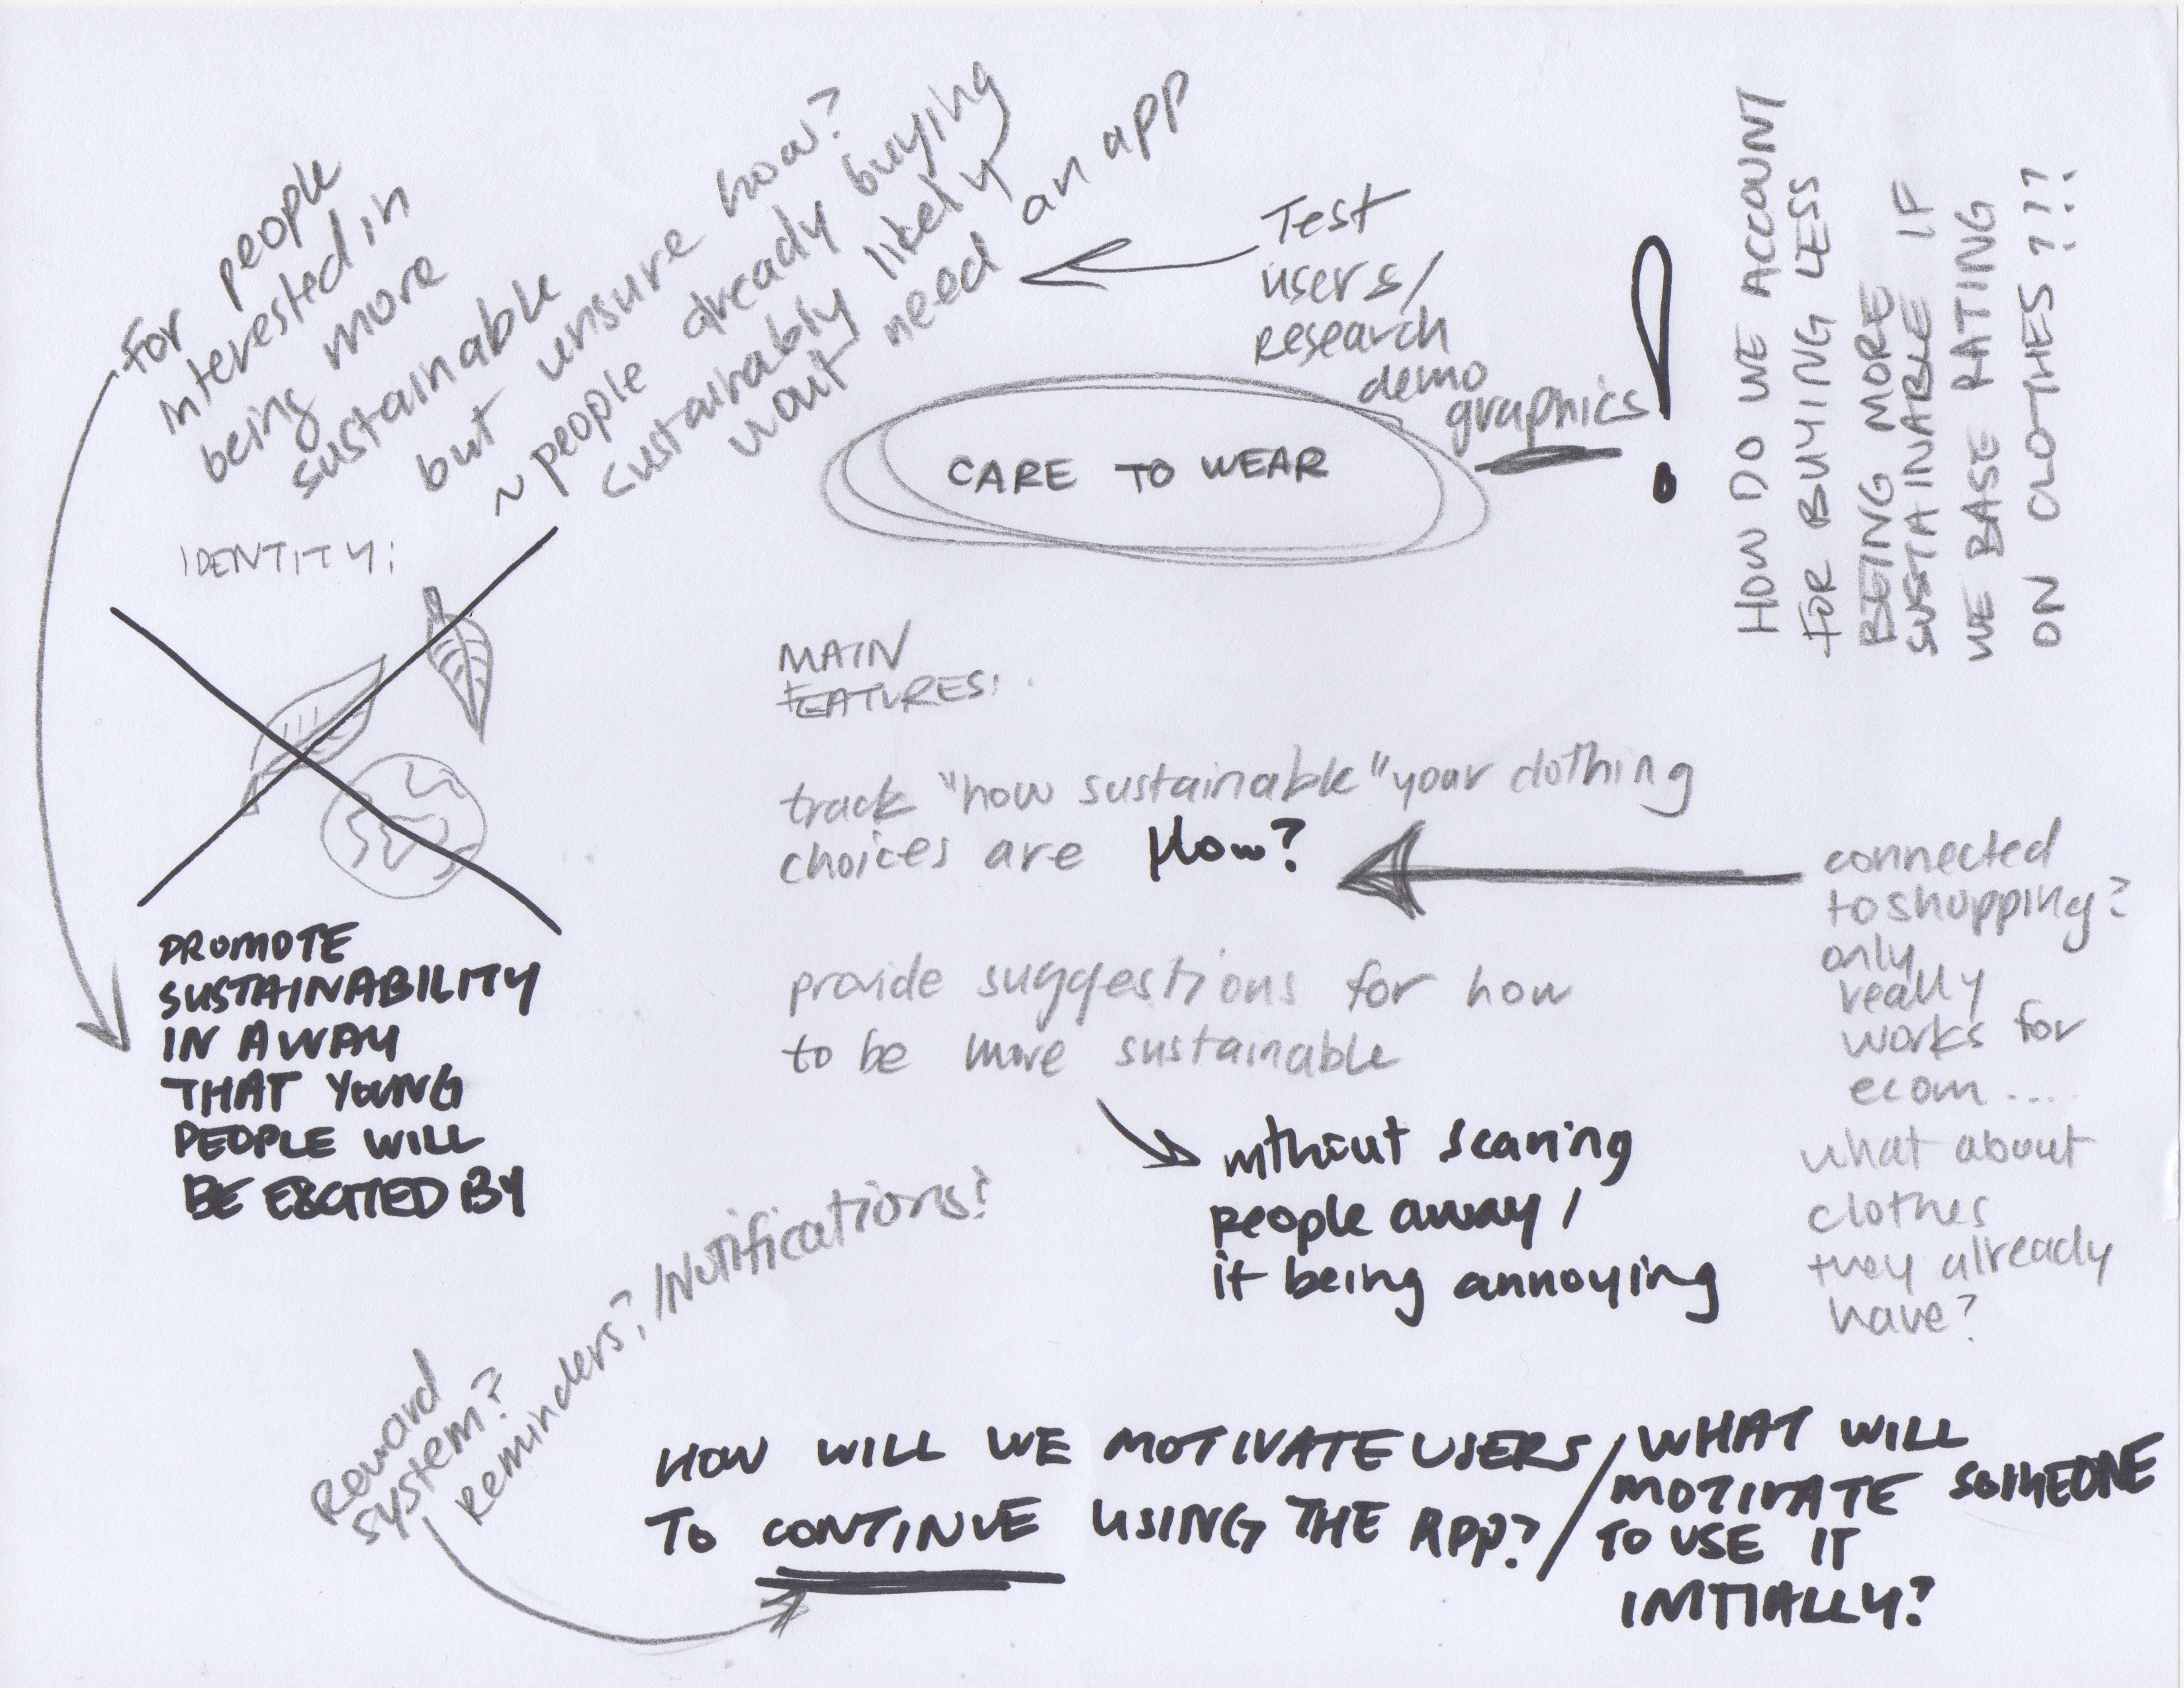 for people
interested in
being more
sustainable
but unsure how?
~ people already buying
sustainably likely
wont need an app
Test
users/
research
demo
graphics
!
CARE TO WEAR
HOW DO WE ACCOUNT
FOR BUYING LESS
BEING MORE
SUSTAINABLE IF
WE BASE RATING
ON CLOTHES ???
IDENTITY:
PROMOTE
SUSTAINABILITY
IN A WAY
THAT YOUNG
PEOPLE WILL
BE EXCITED BY
MAIN
FEATURES:
track "how sustainable" your clothing
choices are How?
connected
to shopping?
only
really
works for
ecom ....
what about
clothes
they already
have?
provide suggestions for how
to be more sustainable
without scaring
people away /
it being annoying
Reward
system?
Reminders? / Notifications?
HOW WILL WE MOTIVATE USERS /
TO CONTINUE USING THE APP?
WHAT WILL
MOTIVATE SOMEONE
TO USE IT
INITIALLY?